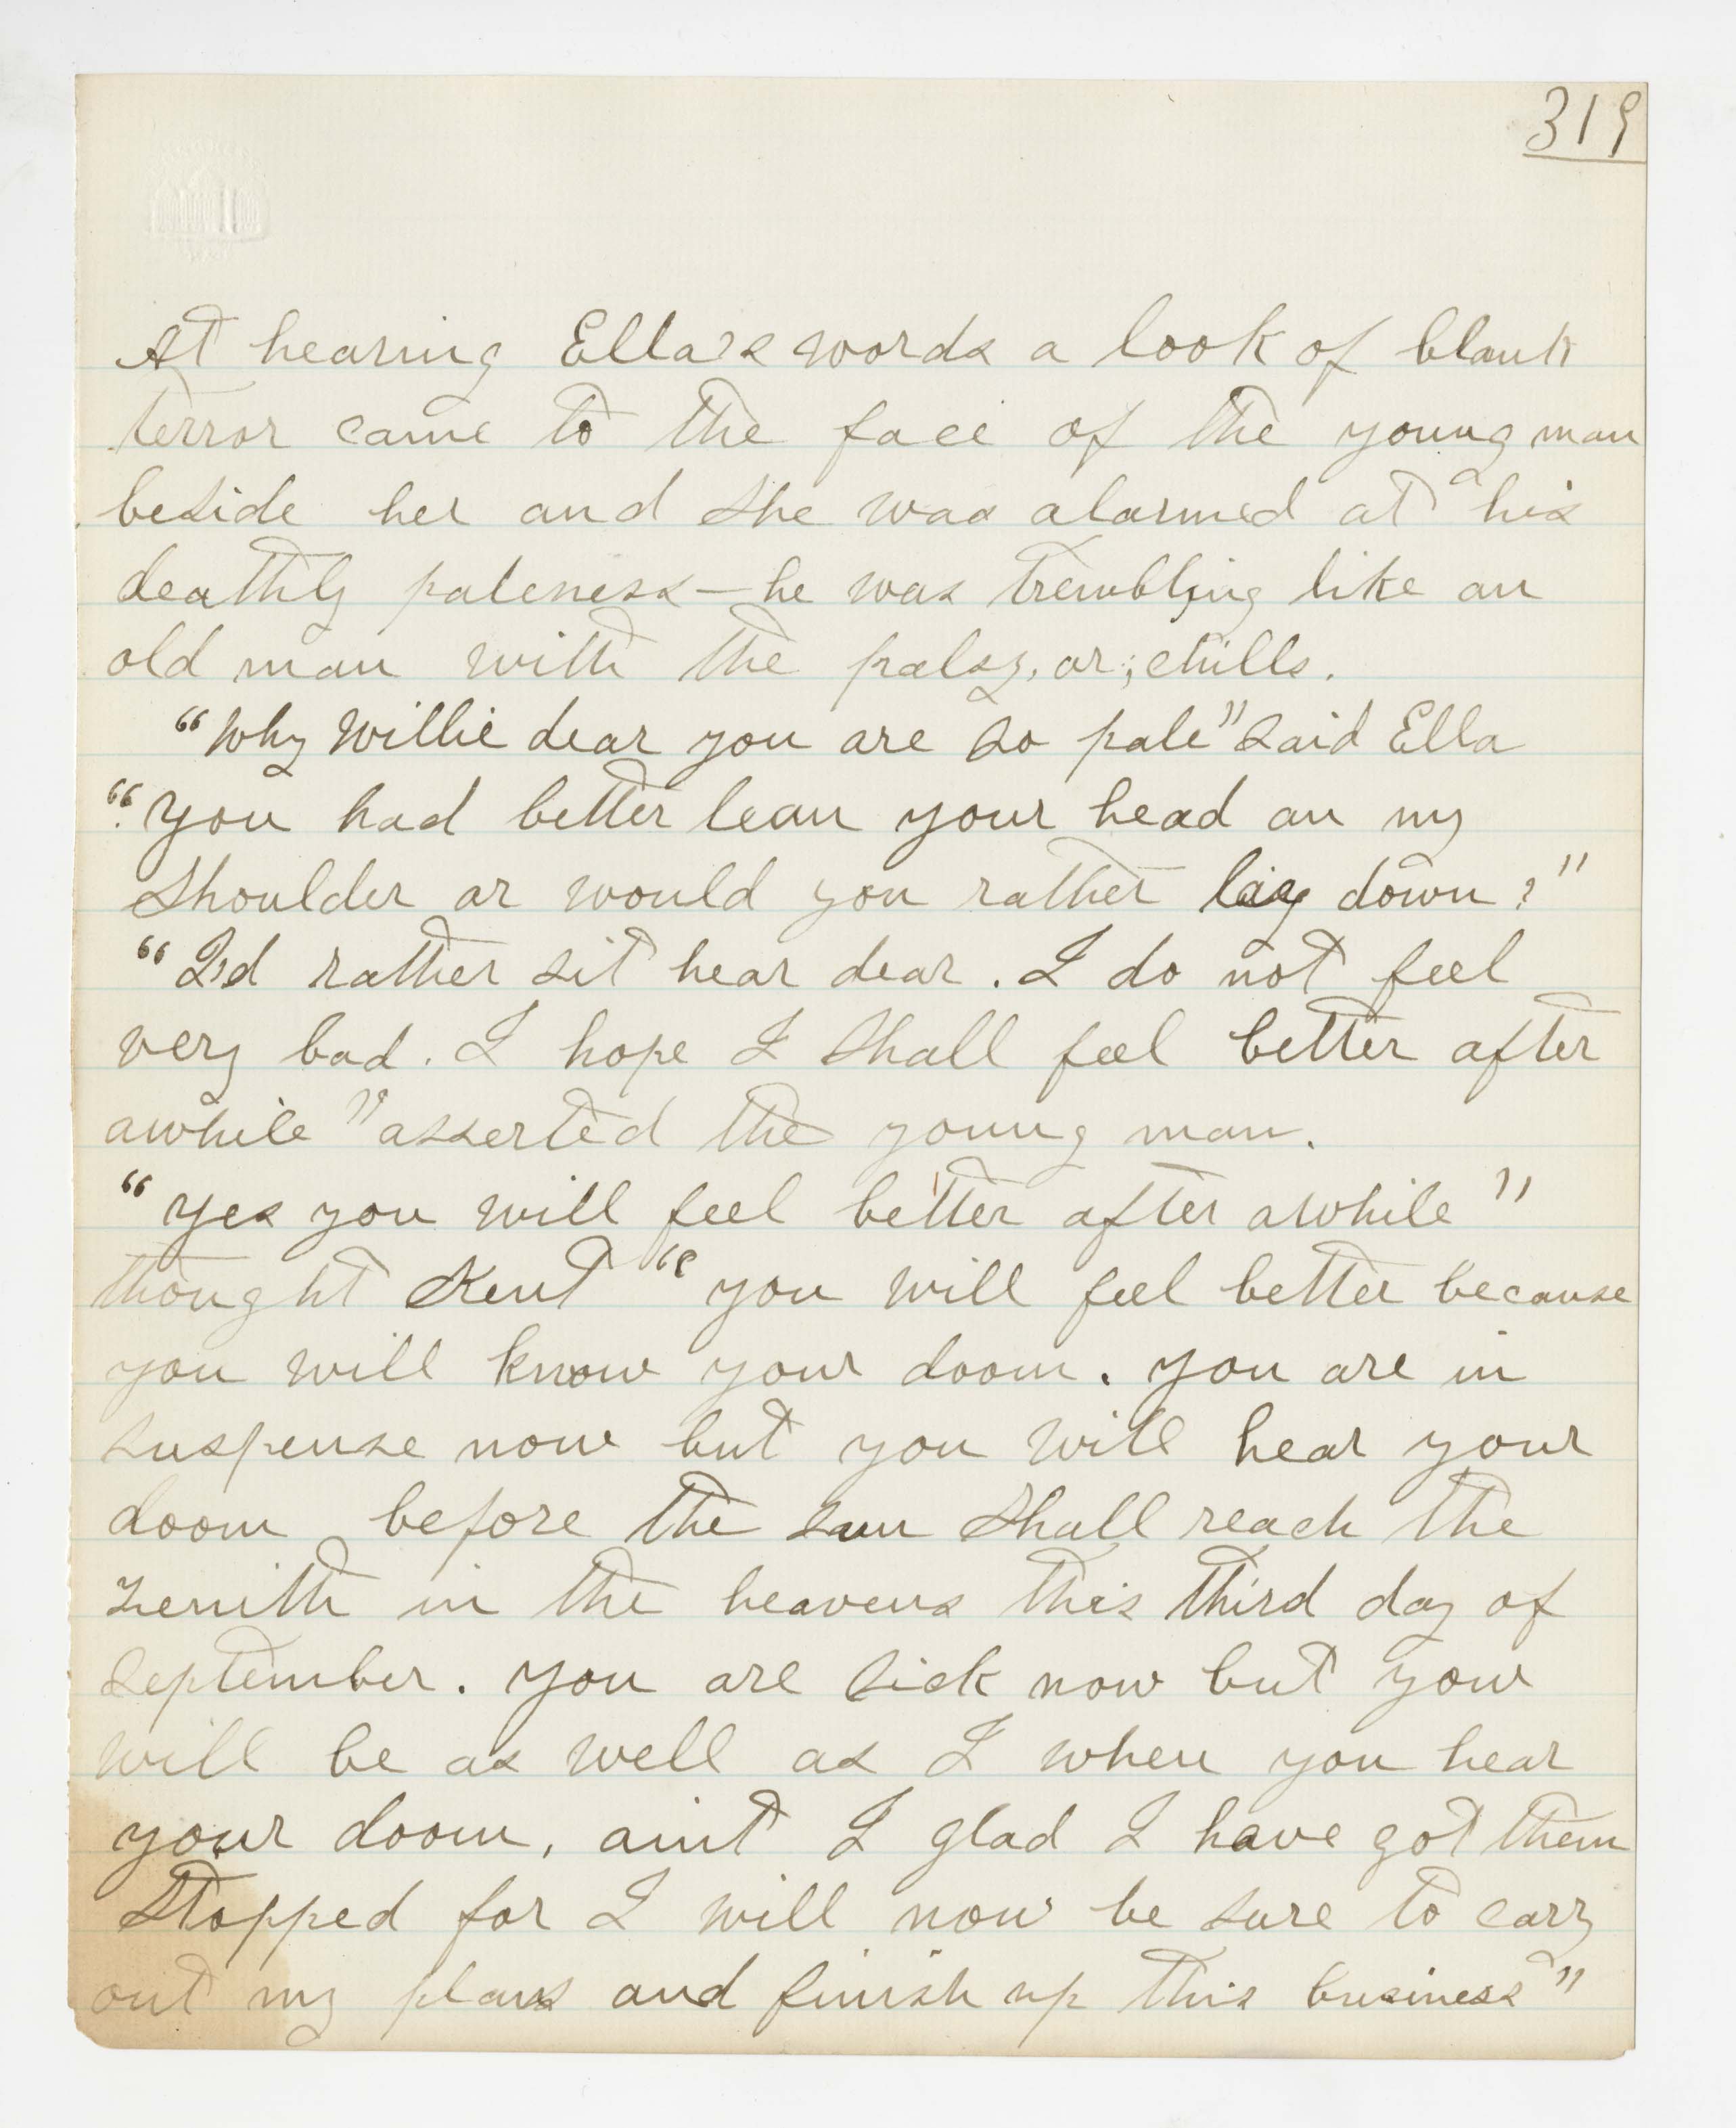 319
At hearing Ella's words a look of blank
terror came to the face of the young man
beside her and she was alarmed at his
deathly paleness—he was trembling like an
old man with the palsy, or; chills.
"Why Willie dear you are so pale" said Ella
"you had better lean your head on my
shoulder or would you rather lay down?"
"I'd rather sit hear dear. I do not feel
very bad. I hope I shall feel better after
awhile" asserted the young man.
"Yes you will feel better after awhile"
thought Kent "you will feel better because
you will know your doom. you are in
suspense now but you will hear your
doom before the sun shall reach the
zenith in the heavens this third day of
September. you are sick now but you
will be as well as I when you hear
your doom, aint I glad I have got them
stopped for I will now be sure to cary
out my plans and finish up this business"